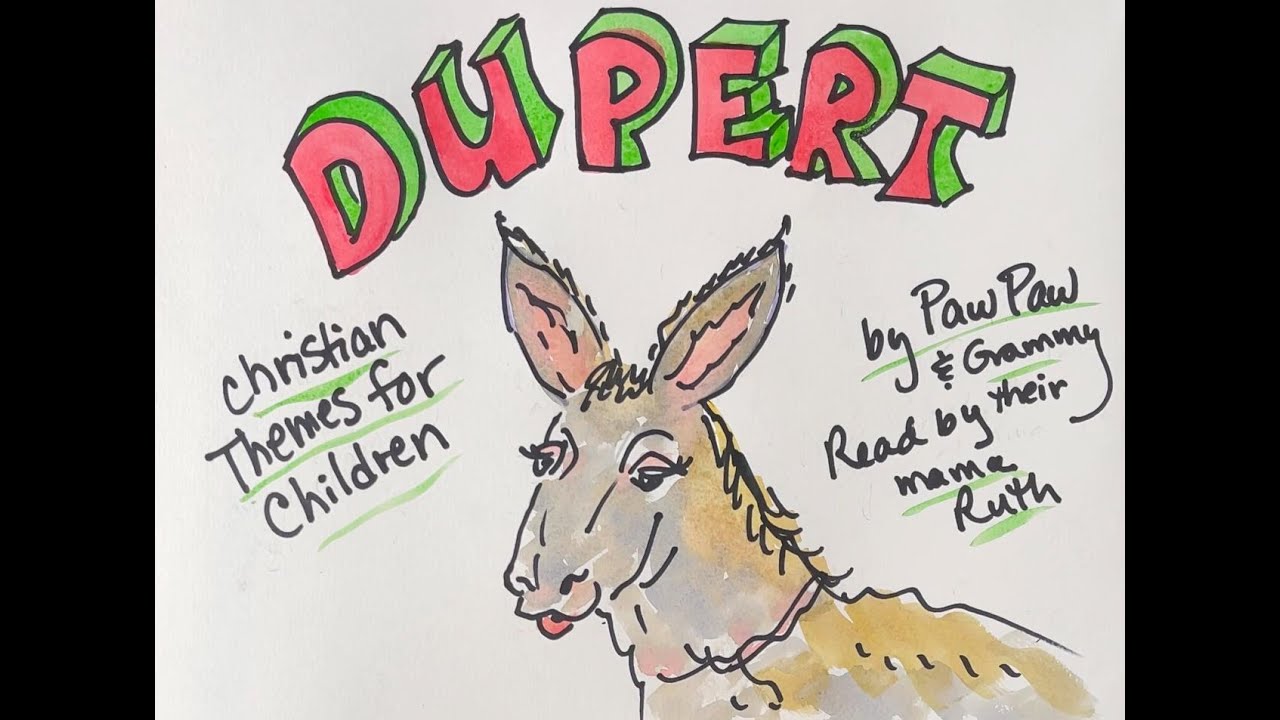 DUPERT
Christian
Themes for
Children
by Paw Paw
& Grammy
Read by their
mama
Ruth